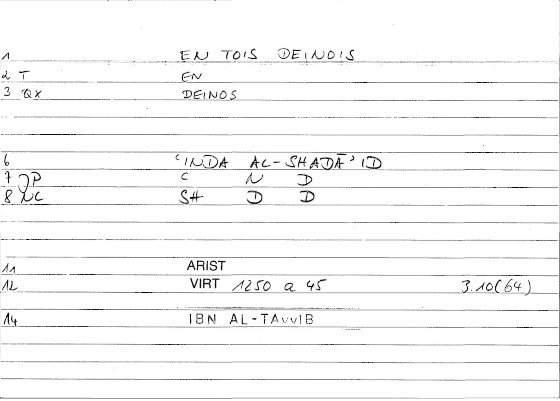 1 EN TOIS DEINOIS
2 T EN
3 QX DEINOS
6 ʿINDA AL-SHADĀʾID
7 JP C N D
8 NC SH D D
11 ARIST
12 VIRT 1250 a 45 3.10(64)
14 IBN AL-TAvvIB